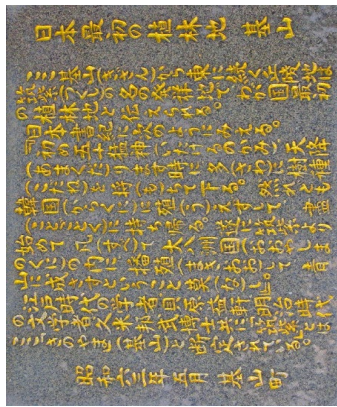 日本最初の植林地 基山
ここ基山(きざん)から東に続く丘陵地は
筑紫(つくし)の名の発祥地で、わが国最初
の植林地と伝えられる。
『日本書紀に次のようにみえる。
「初め五十猛神(いたけるのかみ)天降
(あまくだ)ります時に多(さわ)に樹種
(こだね)を持(も)ちて下る。然れども
韓国(からくに)に殖(う)えずして 盡
(ことごとく)に持ち帰る。遂に筑紫より
始めて凡(すべ)て大八州国(おおやしま
のくに)の内に 播殖(まきおお)して 青
山に成さずということ莫(な)し」
江戸時代の学者貝原益軒 明治時代
の文学者久米邦武博士共に筑紫とは
ここきのやま(基山)と断定されている。
昭和六三年五月 基山町